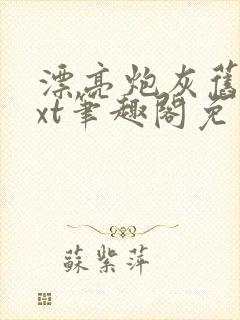 漂亮炮灰舊
xt筆趣閣免
蘇紫萍